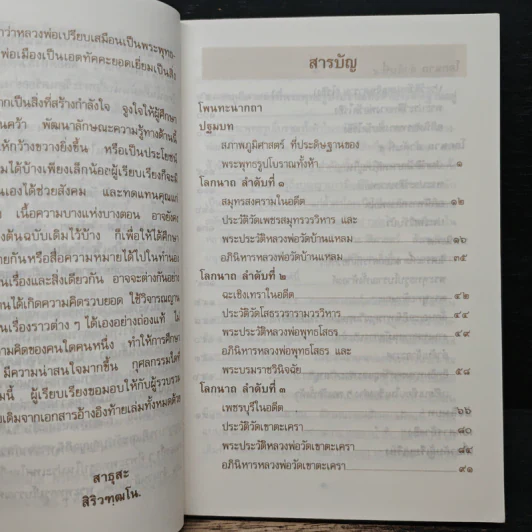 ว่าหลวงพ่อเปรียบเสมือนเป็นพระพุทธ-
พ่อเมืองเป็นเอตทัคคะยอดเยี่ยมเป็นสิ่ง
ากเป็นสิ่งที่สร้างกำลังใจ จูงใจให้ผู้ศึกษา
นคว้า พัฒนาลักษณะความรู้ทางด้านนี้
ให้กว้างขวางยิ่งขึ้น หรือเป็นประโยชน์
มได้บ้างเพียงเล็กน้อยผู้เรียบเรียงก็จะมี
นเองได้ช่วยสังคม และทดแทนคุณแก่
เนื้อความบางแห่งบางตอน อาจยังคง
งต้นฉบับเดิมไว้บ้าง ก็เพื่อให้ได้ศึกษา
ายกันหรือสื่อความหมายได้ไปในทำนอง
นเรื่องและสิ่งเดียวกัน อาจจะต่างกันอย่าง
านได้เกิดความคิดรวบยอด ใช้วิจารณญาณ
นเรื่องราวต่าง ๆ ได้เองอย่างถ่องแท้ ไม่
วามคิดของคนใดคนหนึ่ง ทำให้การศึกษา
มีความน่าสนใจมากขึ้น กุศลกรรมใดที่
มนี้ ผู้เรียบเรียงขอมอบให้กับผู้รวบรวม
บเดิมจากเอกสารอ้างอิงท้ายเล่มทั้งหมดด้วย
สาธุสะ
สิริวฑฺฒโน.
สารบัญ
โพนทะนากถา
ปฐมบท
สภาพภูมิศาสตร์ ที่ประดิษฐานของ
พระพุทธรูปโบราณทั้งห้า ๑
โลกนาถ ลำดับที่ ๑
สมุทรสงครามในอดีต ๑๒
ประวัติวัดเพชรสมุทรวรวิหาร และ
พระประวัติหลวงพ่อวัดบ้านแหลม ๑๖
อภินิหารหลวงพ่อวัดบ้านแหลม ๓๕
โลกนาถ ลำดับที่ ๒
ฉะเชิงเทราในอดีต ๔๒
ประวัติวัดโสธรวรารามวรวิหาร ๔๔
พระประวัติหลวงพ่อพุทธโสธร ๔๙
อภินิหารหลวงพ่อพุทธโสธร และ
พระบรมราชวินิจฉัย ๕๘
โลกนาถ ลำดับที่ ๓
เพชรบุรีในอดีต ๖๖
ประวัติวัดเขาตะเครา ๘๐
พระประวัติหลวงพ่อวัดเขาตะเครา ๘๔
อภินิหารหลวงพ่อวัดเขาตะเครา ๙๑